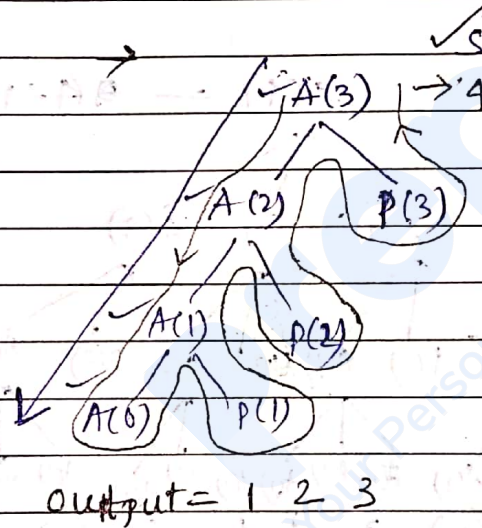 A(3) → 4
A(2) P(3)
A(1) P(2)
A(0) P(1)
output = 1 2 3